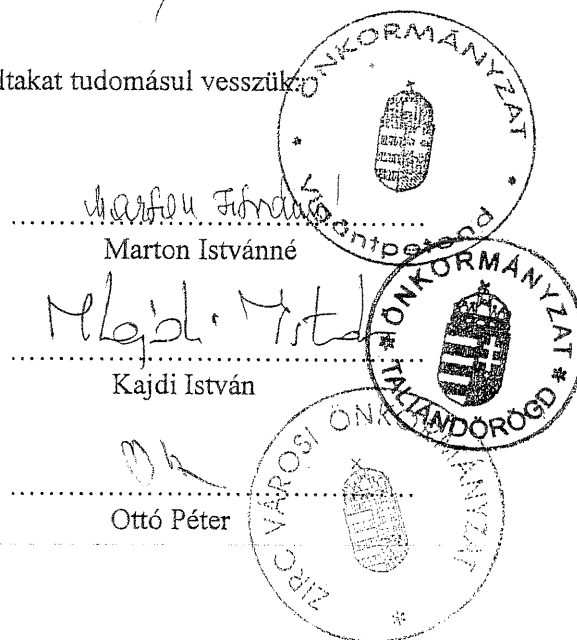 ltakat tudomásul vesszük:
ÖNKORMÁNYZAT
* Vigántpetend *
Marton Istvánné
Marton Istvánné
ÖNKORMÁNYZAT
* TALIÁNDÖRÖGD *
Kajdi István
ZIRC VÁROSI ÖNKORMÁNYZAT
*
Ottó Péter